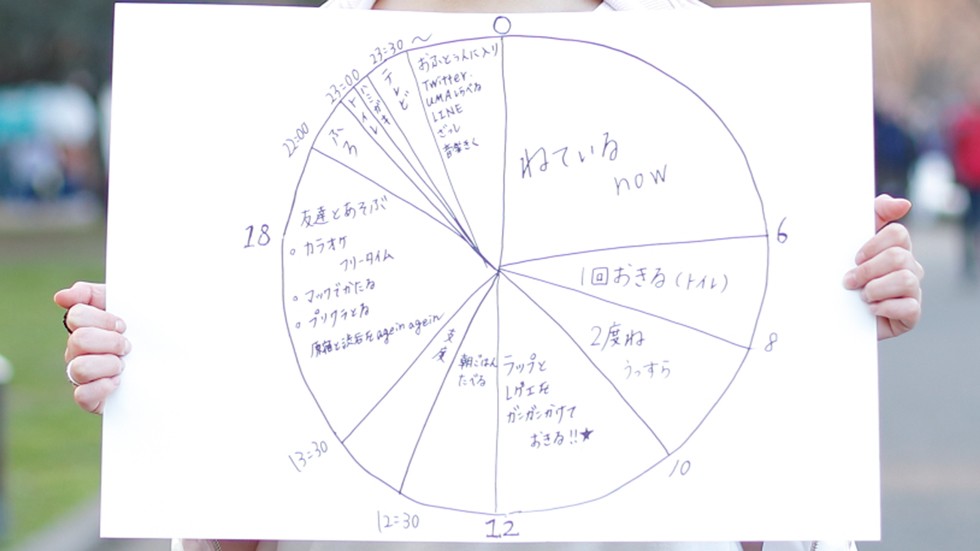 0
ねている
now
6
1回おきる(トイレ)
8
2度ね
うっすら
10
ラップと
レゲエを
ガンガンかけて
おきる!!★
12
朝ごはん
たべる
12:30
支度
13:30
友達とあそぶ
○ カラオケ
フリータイム
○ マックでかたる
○ プリクラとる
原宿と渋谷を agein agein
18
22:00
ふろ
トイレ
ハミガキ
23:00
テレビ
23:30〜
おふとぅんに入り
Twitter.
UMAしらべる
LINE
ざっし
音楽きく